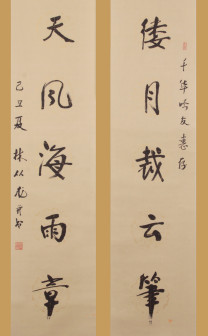 千华吟友惠存
倭月裁云笔
天风海雨章
己丑夏
林从龙